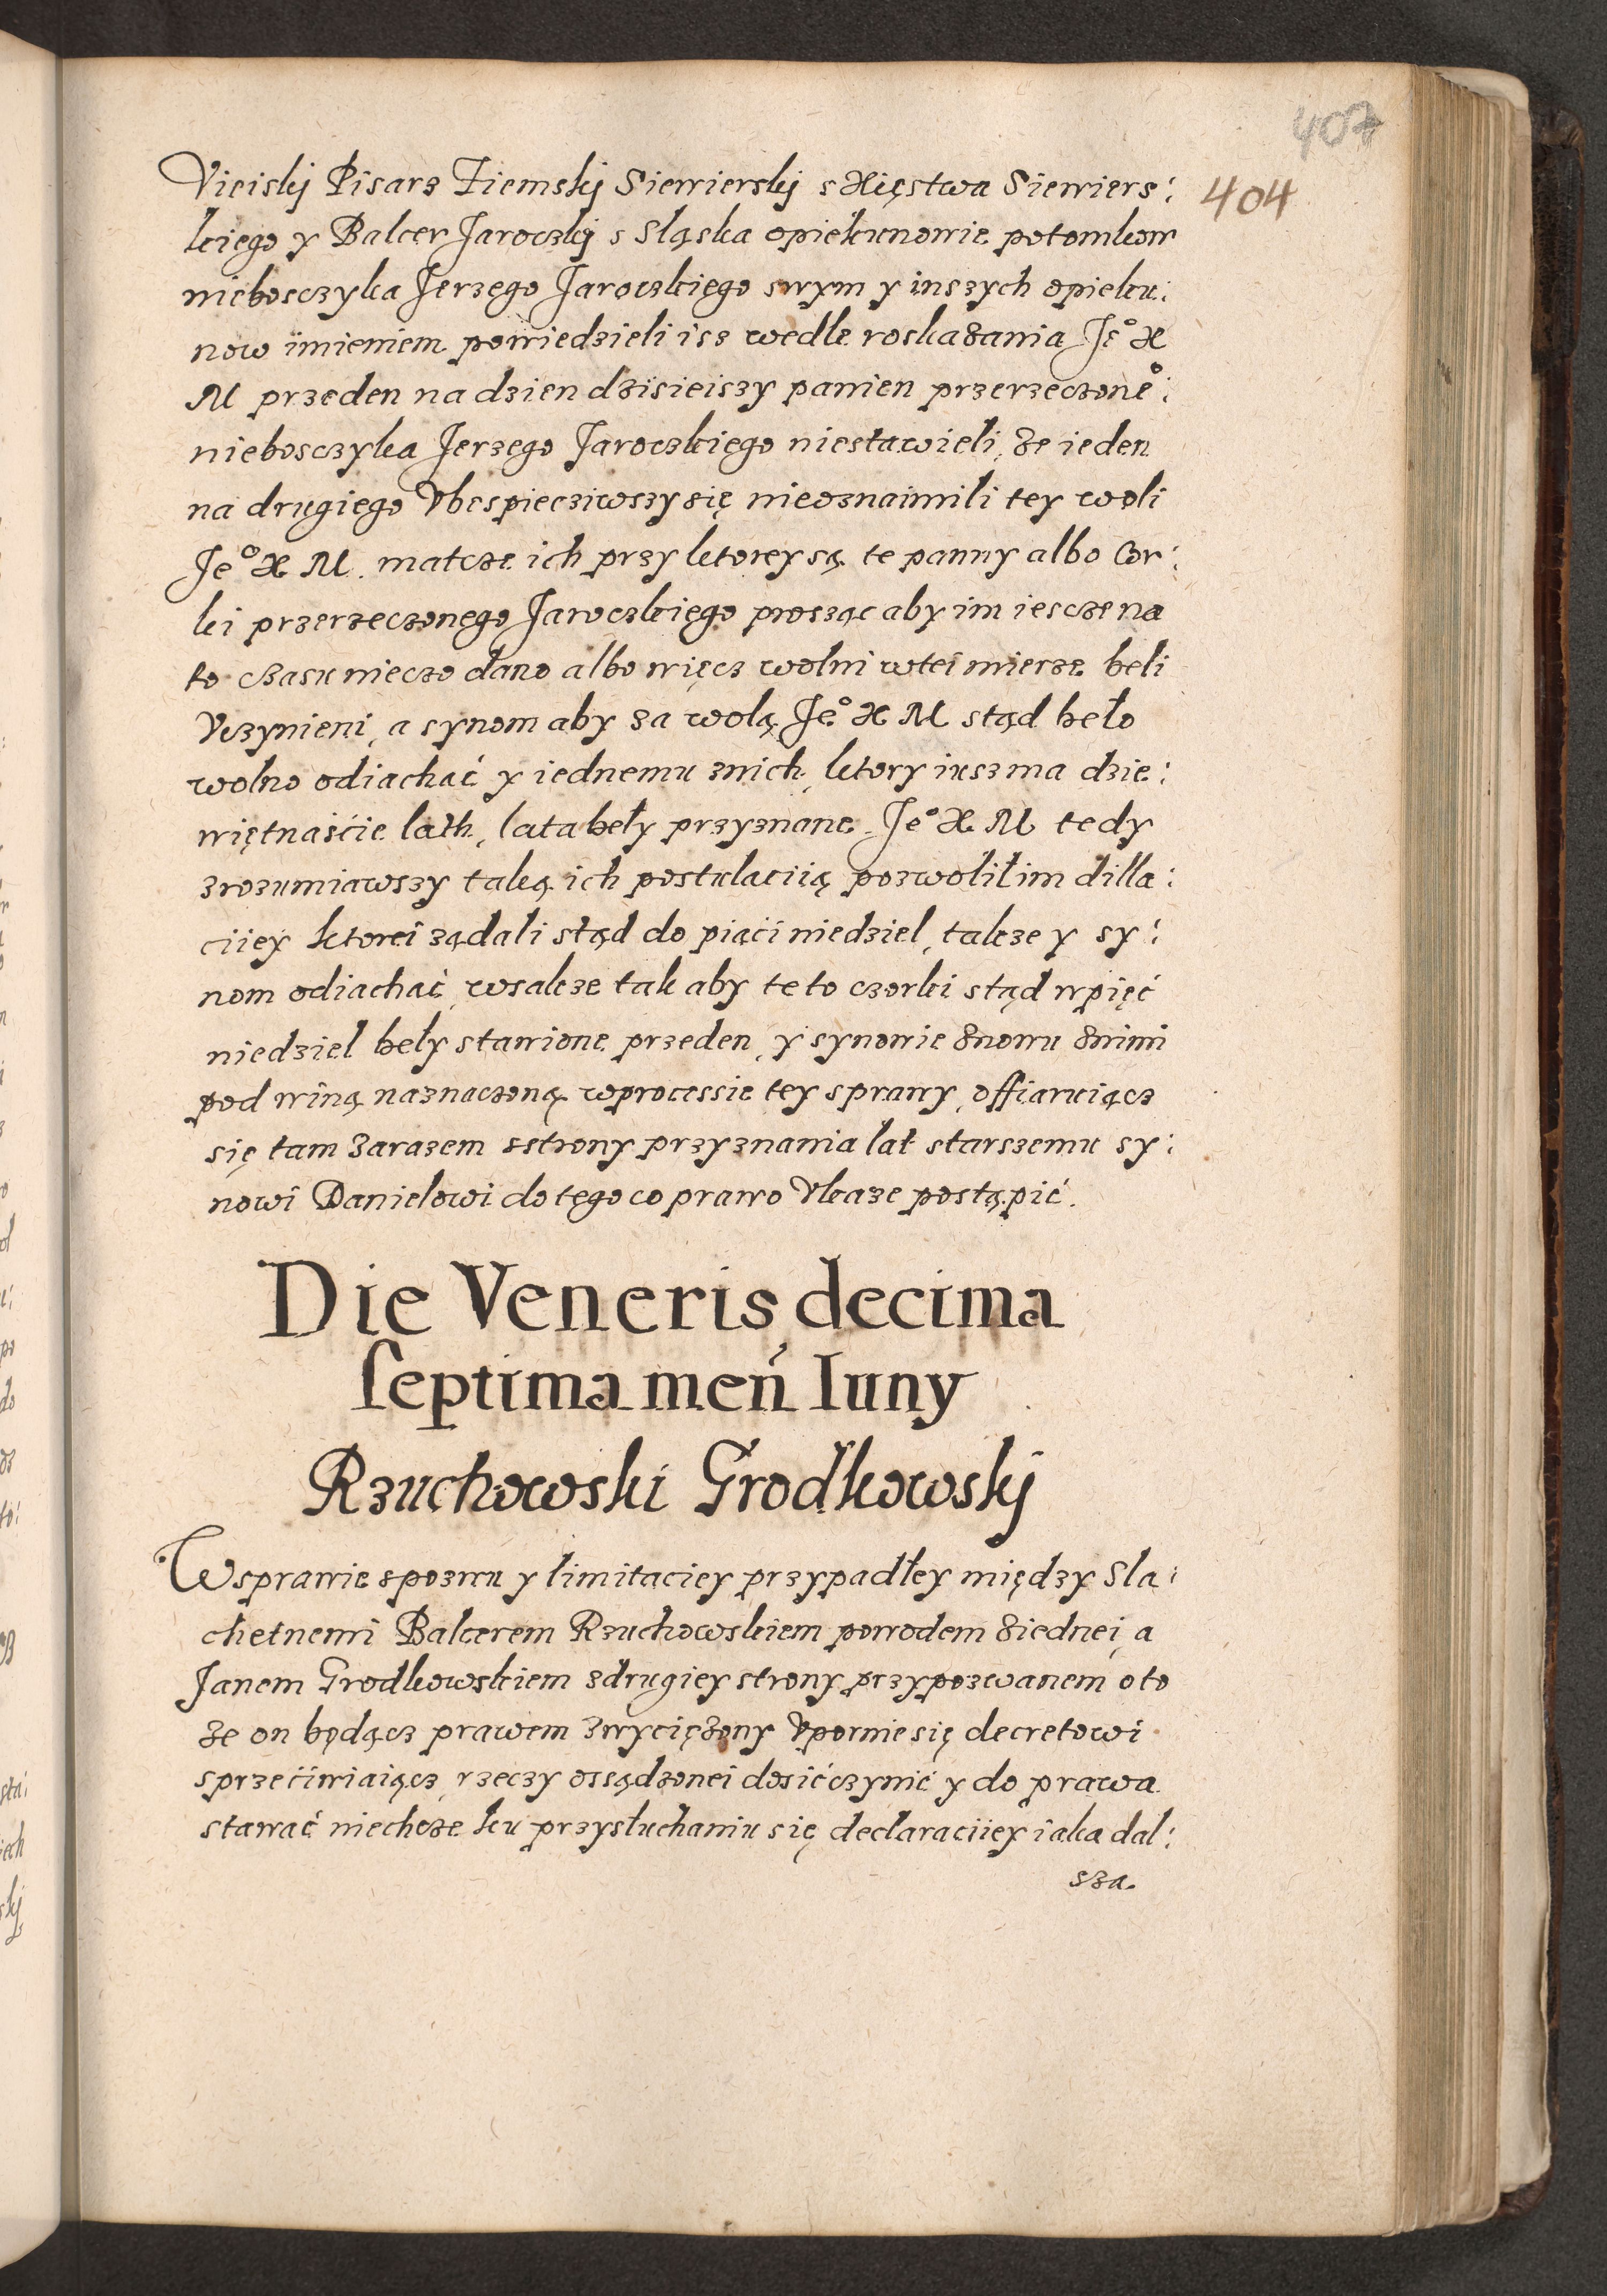 407
404
Vieiskij Pisarz Ziemskij Siewierskij s Xięstwa Siewiers:
kiego y Balcer Jaroczkij s Sląska opiekunowie potomkow
nieboszczyka Jerzego Jaroczkięgo swym y inszych opieku:
now imieniem powiedzieli isz wedle roskazania Je° X
M przeden na dzien dzisieiszy panien przerzeczone°:
nieboszczyka Jerzęgo Jaroczkiego niestawieli, że ieden
na drugiego Vbespiecziwszy się nieoznaimili tey woli
Je° X M. matcze ich przy ktorey są te panny albo Cor:
ki przerzeczonego Jaroczkięgo prosząc aby im iescze na
to czasu nieczo dano albo więcz wolni wtei mierze beli
Vczynieni, a synom aby za wolą Je° X M stąd beło
wolno odiachać y iednemu znich, ktory iusz ma dzie:
więtnaście lath, lata beły przyznane. Je° X M tedy
zrozumiawszy taką ich postulaciią pozwolił im dilla:
ciiey ktorei ządali stąd do piąci niedziel, takze y sy:
nom odiachać, wsakze tak aby te to czorki stąd wpięć
niedziel beły stawione przeden, y synowie znowu znimi
pod winą naznaczoną wprocessie tey sprawy, offiaruiącz
się tam zarazem sstrony przyznania lat starszemu sy:
nowi Danielowi do tęgo co prawo Vkaze postąpić.
Die Veneris decima
septima meń Iuny
Rzuchowski Grodkowskij
W sprawie spozwu y limitaciey przypadłey między Sla:
chetnemi Balcerem Rzuchowskiem powodem ziednei, a
Janem Grodkowskiem zdrugiey strony przypozwanem oto
że on będącz prawem zwyciężony Vpornie się decretowi
sprzećiwiaiącz, rzeczy osądzonei dosić czynić y do prawa
stawać niechcze ku przysłuchaniu się declaraciiey iaka dal:
sza.